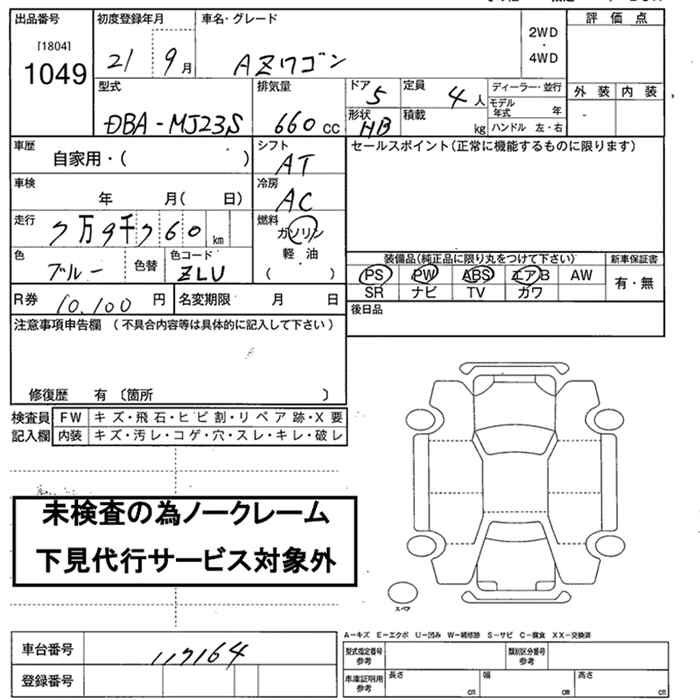 出品番号 初度登録年月 車名・グレード 評価点
[1804] 2WD
1049 21 9月 AZワゴン ・
4WD
型式 排気量 ドア 定員 ディーラー・並行 外装 内装
DBA-MJ23S 660cc 5 4人 モデル年式 年
形状 HB 積載 kg ハンドル 左・右
車歴 自家用・( ) シフト AT セールスポイント(正常に機能するものに限ります)
車検 年 月( 日) 冷房 AC
走行 7万9千760km 燃料 ガソリン
軽油
( )
色 ブルー 色替 色コード ZLU
装備品(純正品に限り丸をつけて下さい) 新車保証書
PS PW ABS エアB AW 有・無
SR ナビ TV ガワ
R券 10,100円 名変期限 月 日 後日品
注意事項申告欄(不具合内容等は具体的に記入して下さい)
修復歴 有〔箇所 〕
検査員 FW キズ・飛石・ヒビ割・リペア跡・X要
記入欄 内装 キズ・汚レ・コゲ・穴・スレ・キレ・破レ
未検査の為ノークレーム
下見代行サービス対象外
スペア
A-キズ E-エクボ U-凹み W-補修跡 S-サビ C-腐食 XX-交換済
車台番号 117164 型式指定番号 参考 類別区分番号 参考
登録番号 車庫証明用 参考 長さ cm 幅 cm 高さ cm